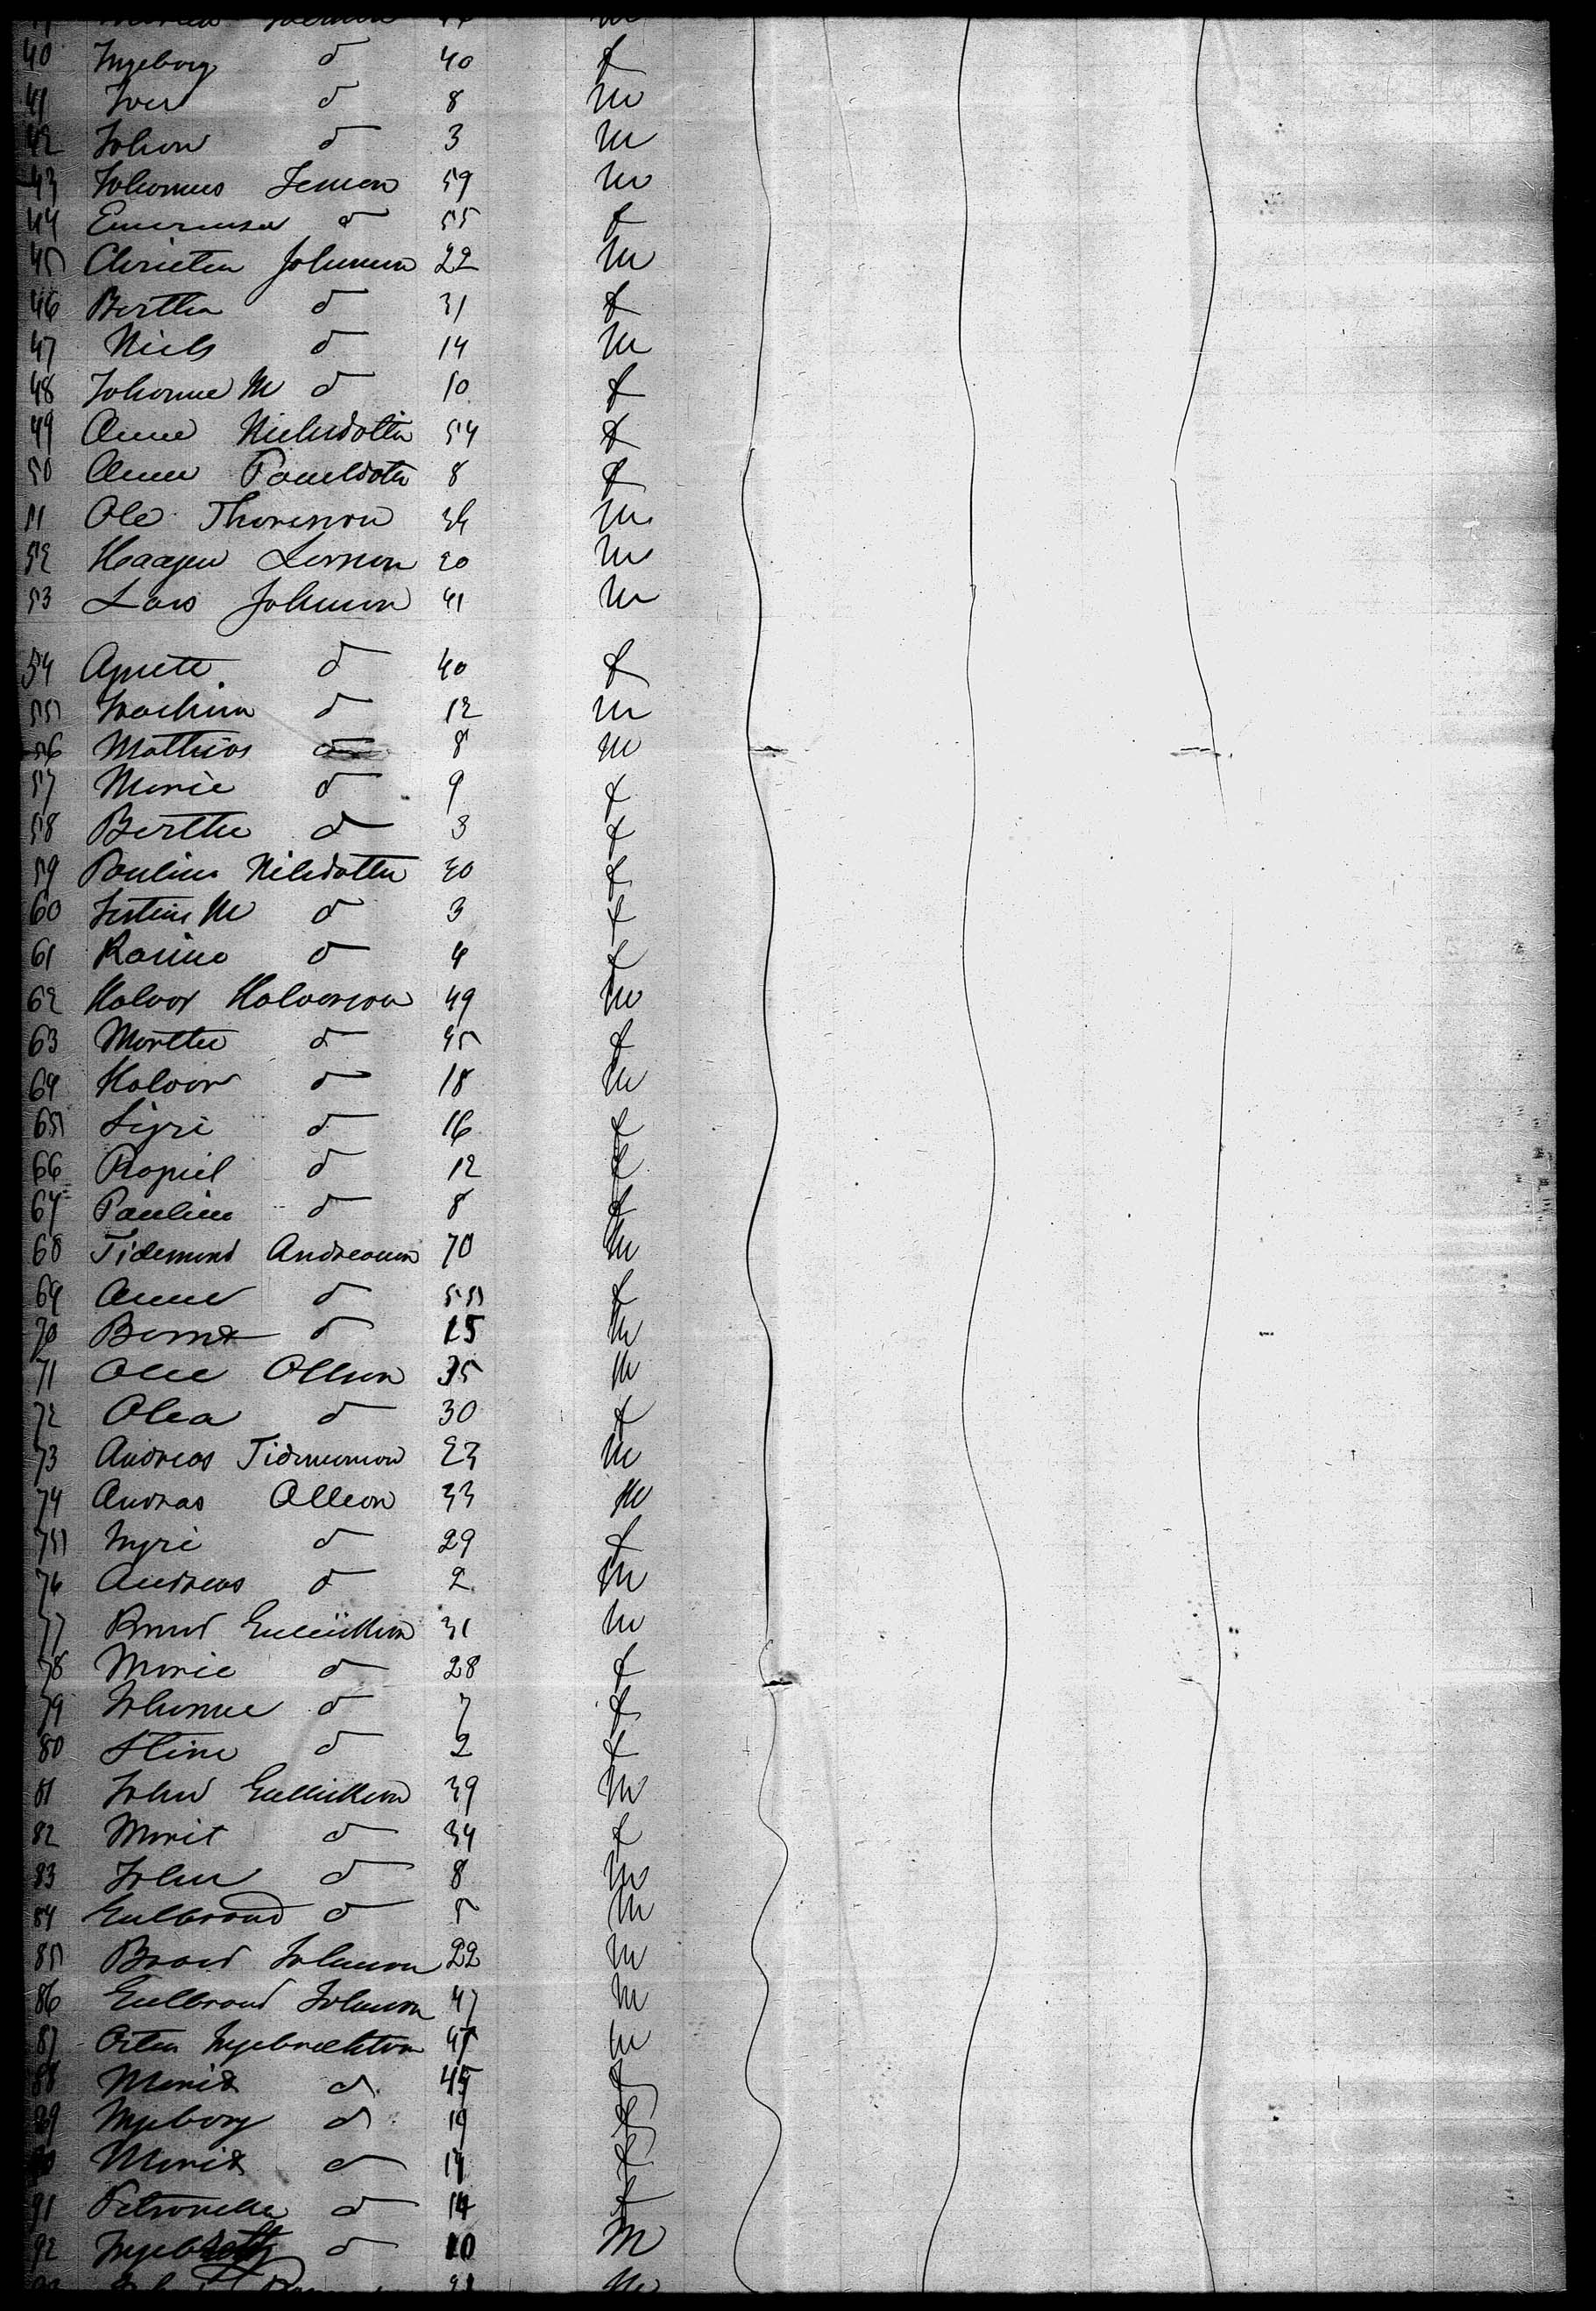 40 Ingeborg d 40 f
41 Iver d 8 m
42 Johan d 3 m
43 Johannes Jensen 59 m
44 d 55 f
45 Christen Johnson 22 m
46 Berthe d 31 f
47 Niels d 14 m
48 Johanne M d 10 f
49 Anne Nielsdotter 54 f
50 Anne 8 f
51 Ole Thoreson 34 m
52 Haagen Larson 20 m
53 Lars Johnson 41 m
54 Agnete d 40 f
55 Joachim d 12 m
56 Mathias d 8 m
57 Marie d 9 f
58 Berthe d 3 f
59 Pauline Nilsdotter 30 f
60 M d 3 f
61 Rasine d 4 f
62 Halvor Halvorson 49 m
63 Marthe d 45 f
64 Halvor d 18 m
65 Sigri d 16 f
66 Ragnil d 12 f
67 Pauline d 8 f
68 Tidemand Andreason 70 m
69 Anne d 55 f
70 Bernt d 15 m
71 Ole Olleson 35 m
72 Olea d 30 f
73 Andreas 23 m
74 Andras Olleson 33 m
75 d 29 f
76 Andreas d 2 m
77 Gullickson 31 m
78 Marie d 28 f
79 Johanne d 7 f
80 Stine d 2 f
81 John Gullickson 39 m
82 Marit d 34 f
83 John d 8 m
84 Gulbrand d 5 m
85 Johnson 22 m
86 Gulbrand Johnson 47 m
87 Ingebrechtson 47 m
88 Marit d 45 f
89 Ingeborg d 19 f
90 Marit d 14 f
91 Petronelle d 14 f
92 d 10 m